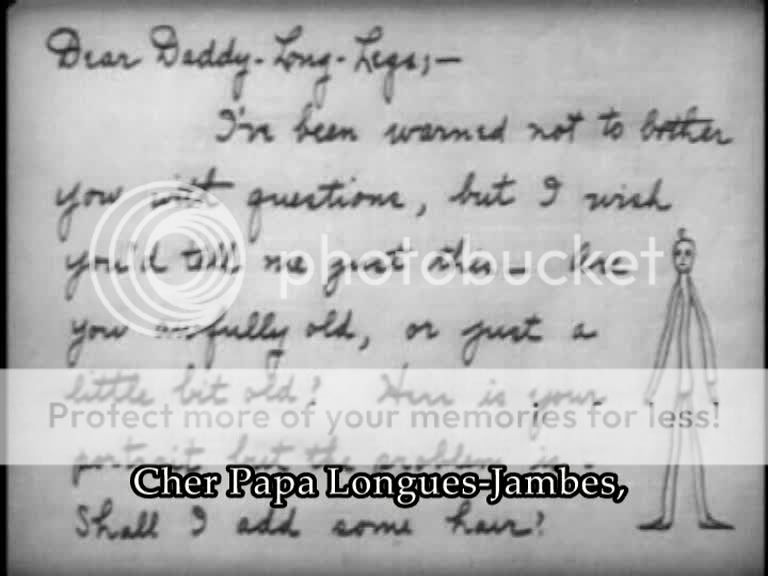 Dear Daddy-Long-Legs;—
I've been warned not to bother
you with questions, but I wish
you'd tell me just this — Are
you awfully old, or just a
little bit old? Here is your
portrait but the problem is —
Shall I add some hair?
photobucket
Protect more of your memories for less!
Cher Papa Longues-Jambes,